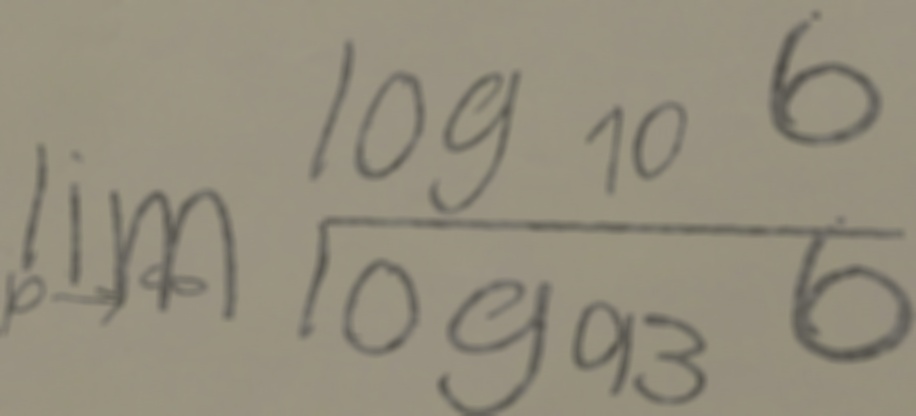 lim p→∞ \frac{log_{10} 6}{log_{93} 6}